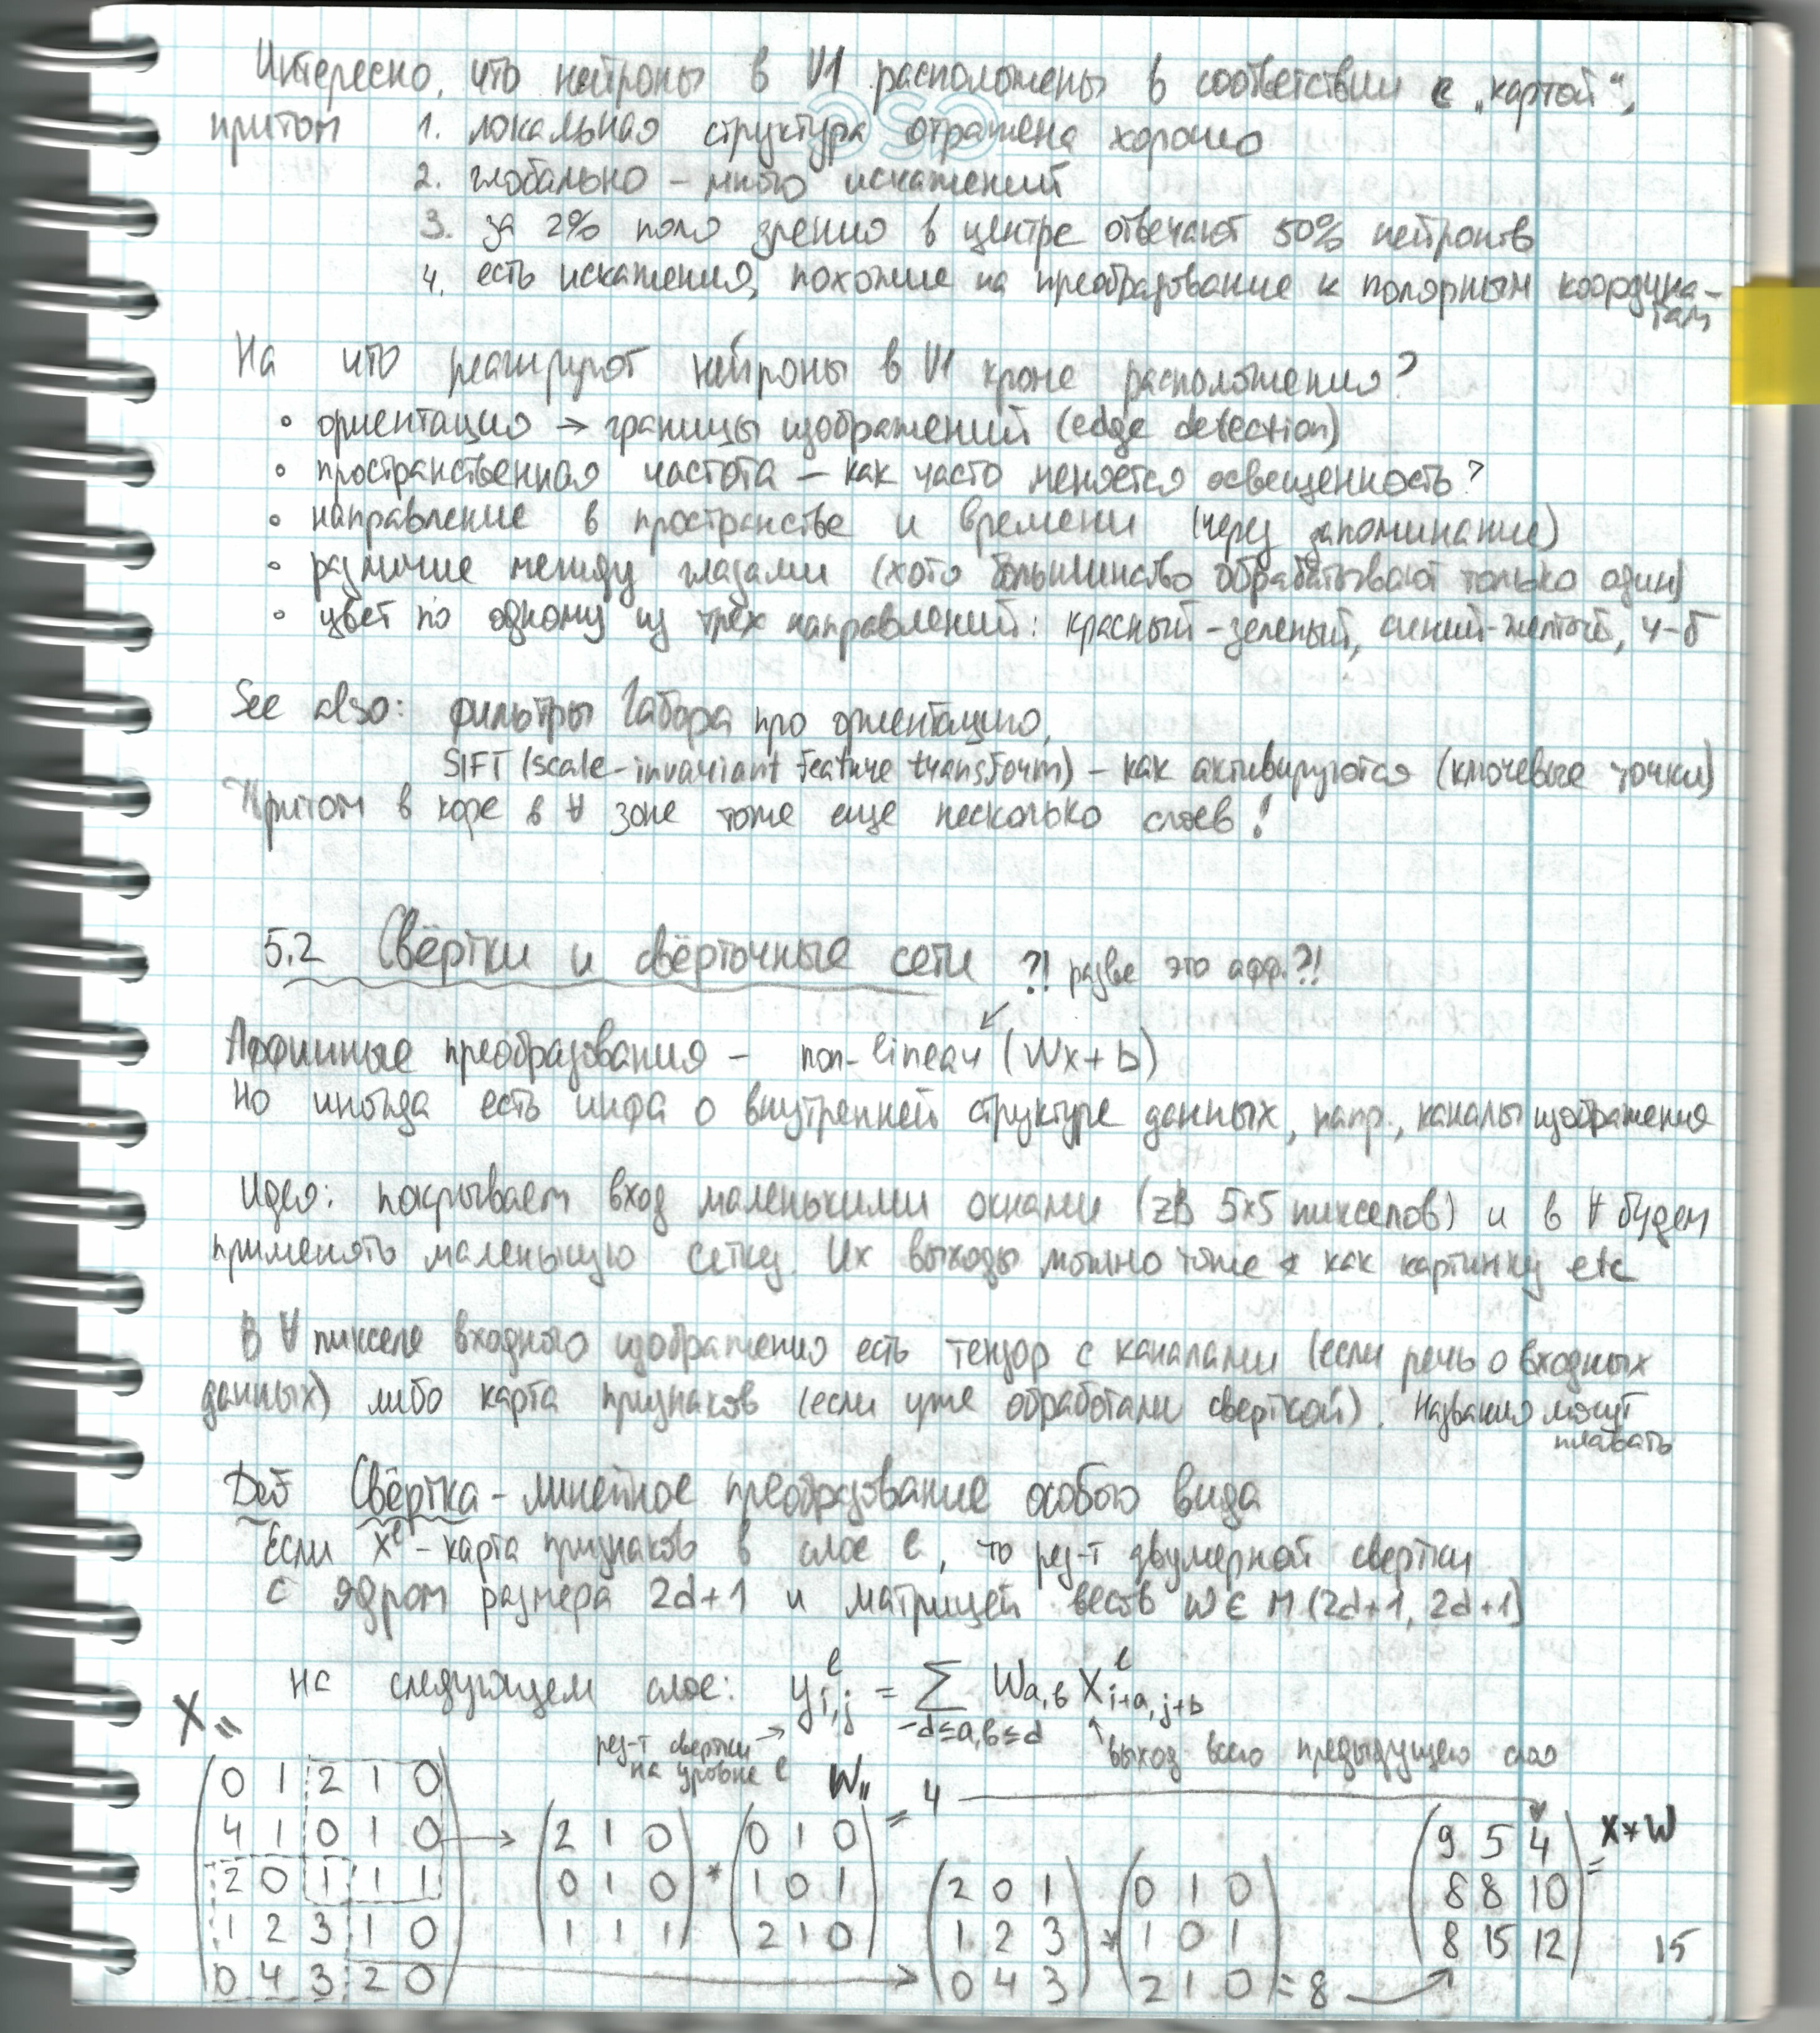 Интересно, что нейроны в V1 расположены в соответствии с „картой“,
притом 1. локальная структура отражена хорошо
2. глобально – много искажений
3. за 2% поля зрения в центре отвечают 50% нейронов
4. есть искажения, похожие на преобразование к полярным координа-
там
На что реагируют нейроны в V1 кроме расположения?
• ориентацию → границы изображений (edge detection)
• пространственная частота – как часто меняется освещенность?
• направление в пространстве и времени (через запоминание)
• различие между глазами (хотя большинство обрабатывают только один)
• цвет по одному из трех направлений: красный-зеленый, синий-желтый, ч-б
See also: фильтры Габора про ориентацию,
SIFT (scale-invariant feature transform) – как активируются (ключевые точки)
Притом в коре в ∀ зоне тоже еще несколько слоев!
5.2 Свёртки и свёрточные сети ?! разве это афф.?!
Аффинные преобразования – non-linear (Wx+b)
Но иногда есть инфа о внутренней структуре данных, напр., каналы изображения
Идея: покрываем вход маленькими окнами (zB 5×5 пикселов) и в ∀ будем
применять маленькую сетку. Их выходы можно тоже как картинку etc
В ∀ пикселе входного изображения есть тензор с каналами (если речь о входных
данных) либо карта признаков (если уже обработали сверткой). Названия могут
плавать
Def Свёртка – линейное преобразование особого вида
Если x^l – карта признаков в слое l, то рез-т двумерной свертки
с ядром размера 2d+1 и матрицей весов W ∈ M(2d+1, 2d+1)
на следующем слое: y^l_{i,j} = ∑_{-d≤a,b≤d} W_{a,b} X^l_{i+a, j+b}
рез-т свертки → ↖ выход всего предыдущего слоя
на уровне l
X = W = = 4
0 1 2 1 0
4 1 0 1 0 → 2 1 0 * 0 1 0 9 5 4 = X*W
2 0 1 1 1 0 1 0 1 0 1 2 0 1 * 0 1 0 8 8 10
1 2 3 1 0 1 1 1 2 1 0 1 2 3 1 0 1 8 15 12 15
0 4 3 2 0 → 0 4 3 2 1 0 = 8